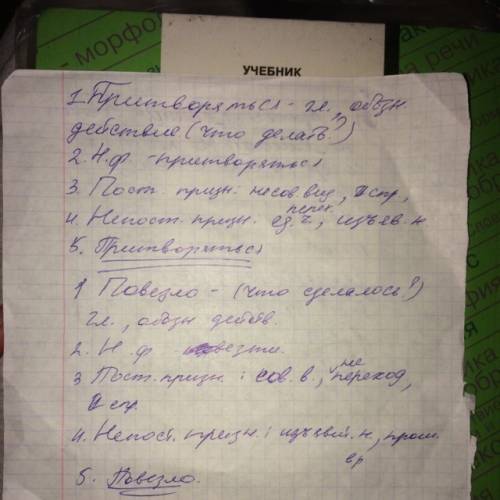 морфо
УЧЕБНИК
а речи
1. Притворяться - гл., обозн.
действие (что делать?)
2. Н.ф. - притворяться
3. Пост. призн.: несов вид, II спр,
перех.
4. Непост. призн. ед.ч., изъяв. н
5. Притворяться
1 Повезло - (что сделалось?)
гл., обозн действ.
2. Н. ф везти.
не
3 Пост. призн.: сов. в., переход,
спр.
4. Непост. призн: изъявит. н, прош.
вр
5. Повезло.